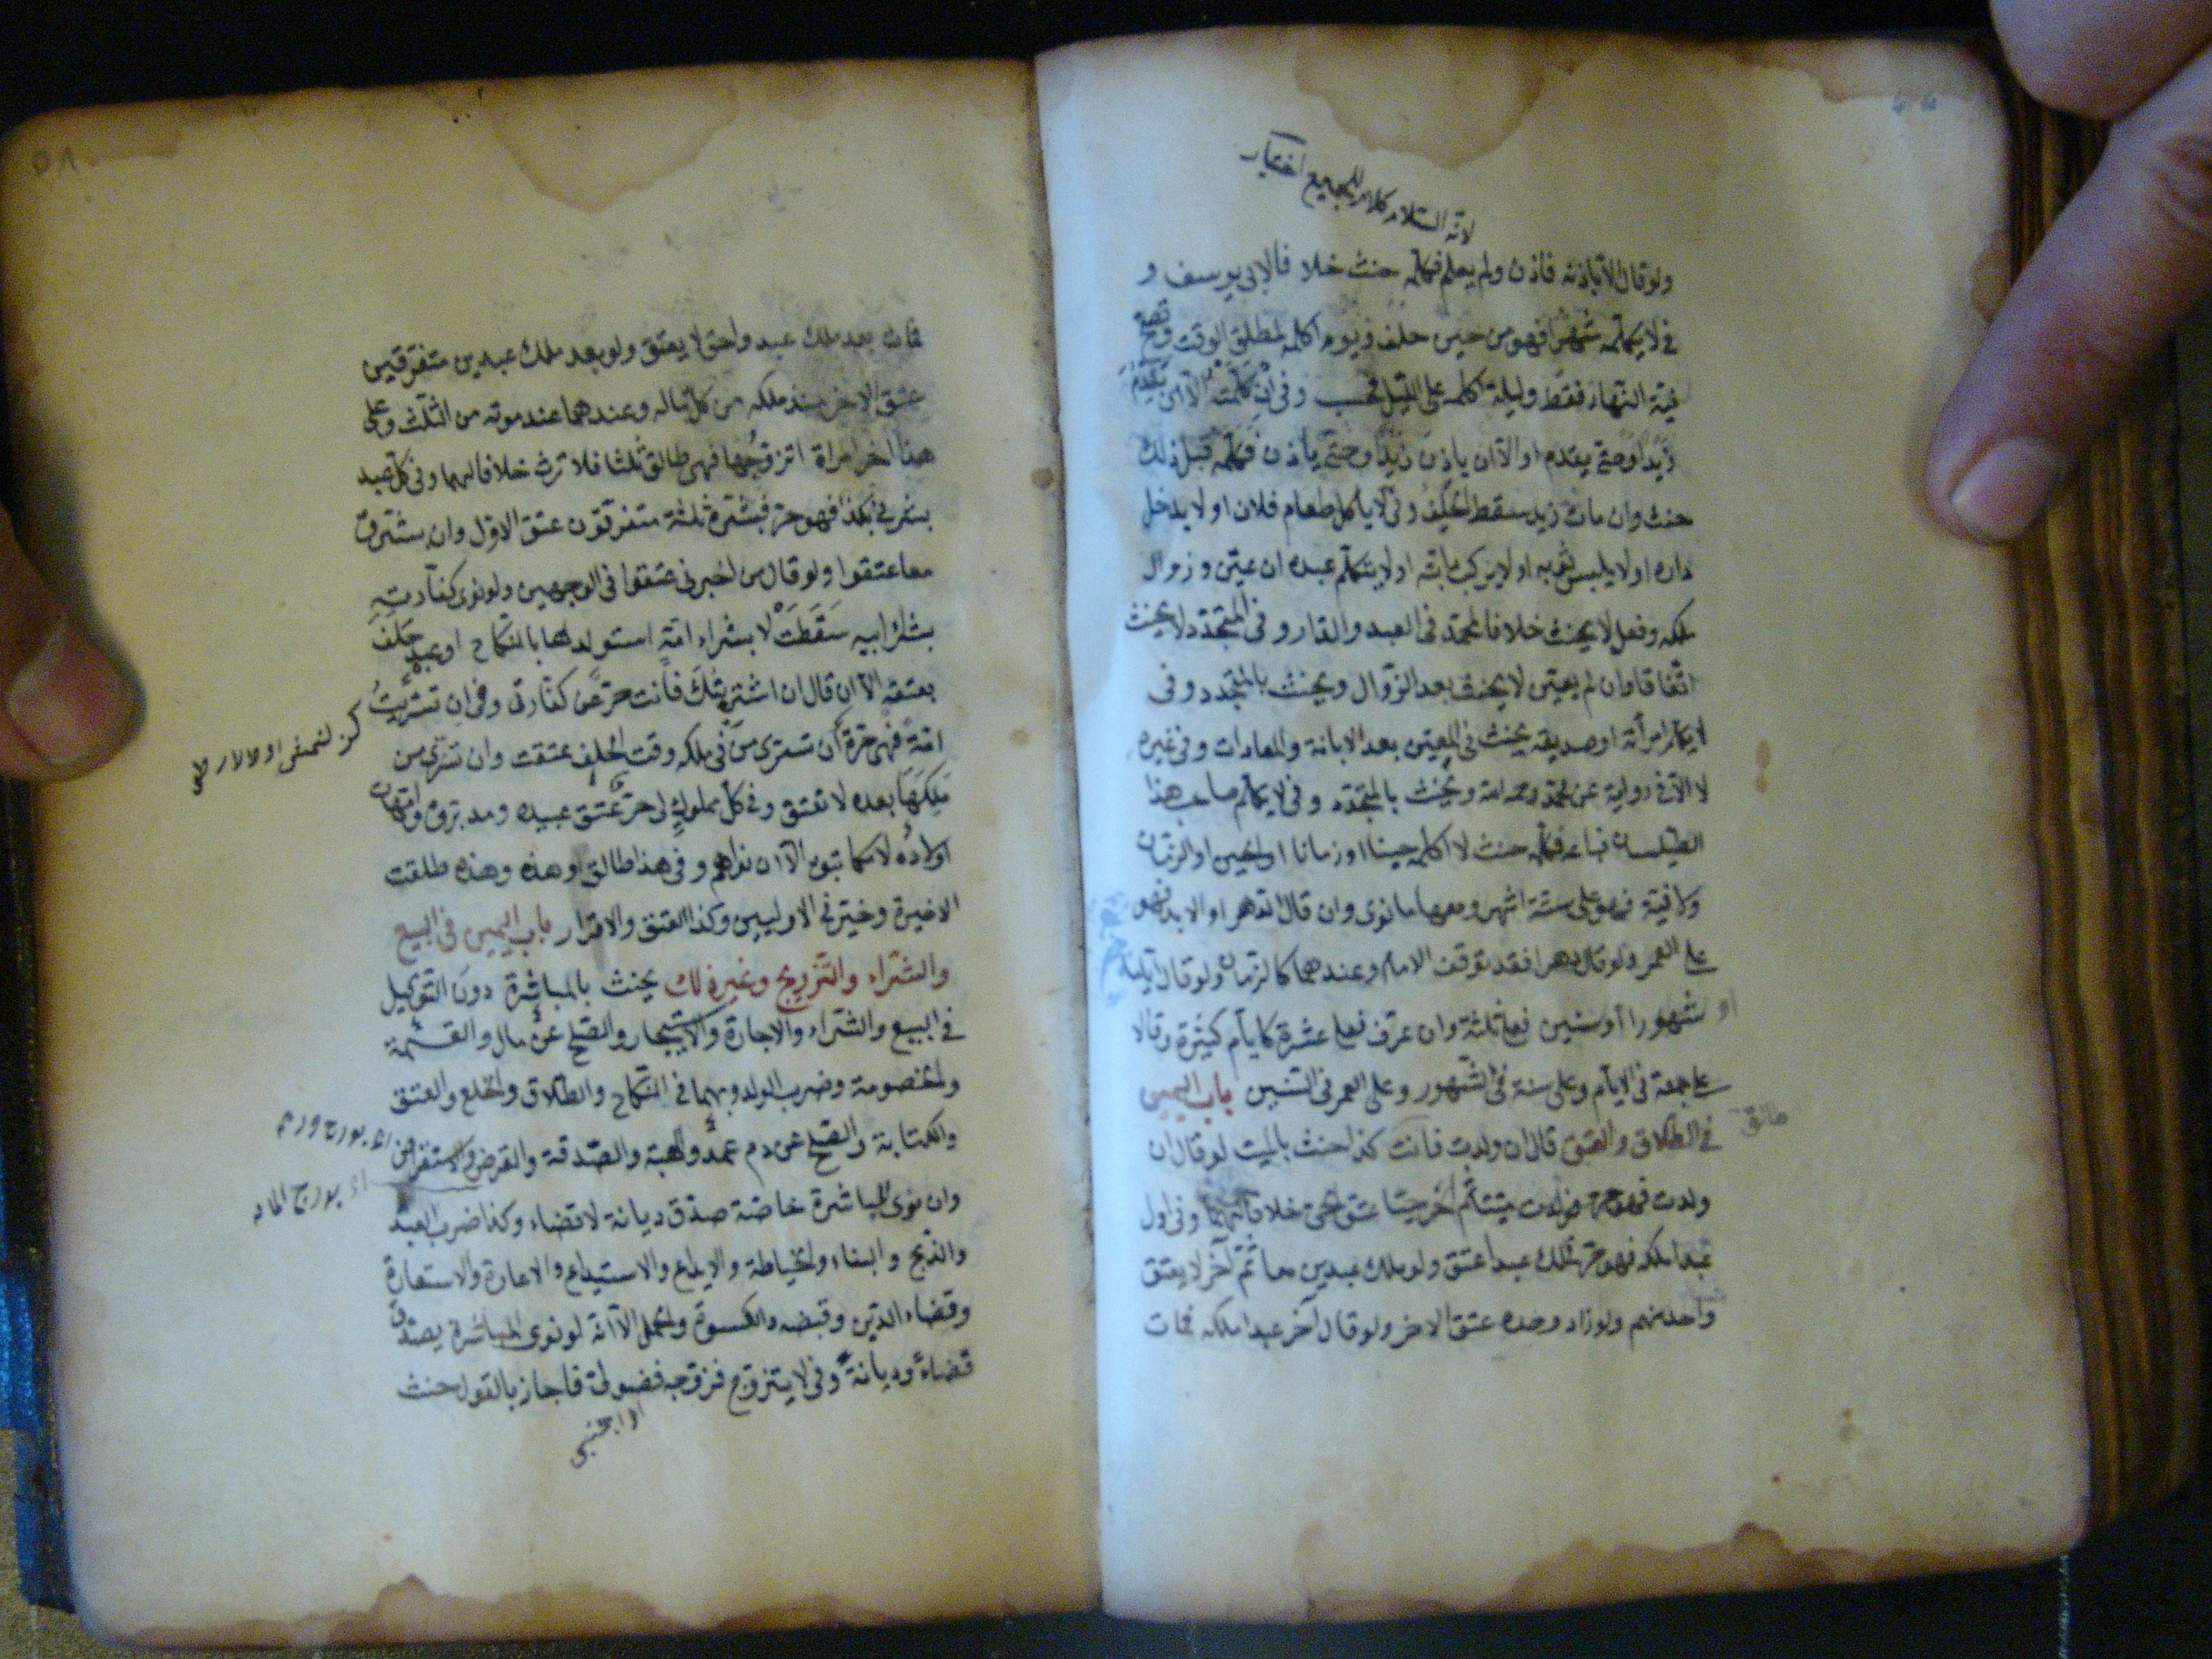 لانه السلام كلام للجميع اختيار
ولو قال الا باذنه فاذن ولم يعلم فكلمه حنث خلافا لابي يوسف و
في لا يكلمه شهرا فهو من حين حلف ويوم اكلمه لمطلق الوقت وتصح
نية النهار فقط وليلة اكلمه على الليل فحسب وفي ان كلمته الا ان يقدم
زيد او حتى يقدم او الا ان ياذن زيد او حتى ياذن فكلمه قبل ذلك
حنث وان مات زيد سقط الحلف وفي لا ياكل طعام فلان او لا يدخل
داره او لا يلبس ثوبه او لا يركب دابته او لا يتكلم عبده ان عين وزوال
ملكه وفعل لا يحنث خلافا لمحمد في العبد والدار وفي المتجدد لا يحنث
اتفاقا وان لم يعين لا يحنث بعد الزوال ويحنث بالمتجدد وفي
لا يكلم امرأته او صديقه يحنث في المعين بعد الابانة والمعادات وفي غيره
لا الا في رواية عن محمد رحمه الله ويحنث بالمتجدد وفي لا يكلم صاحب هذا
الطيلسان فباعه فكلمه حنث لا اكلمه حينا او زمانا او الحين او الزمان
ولا نية فهو على ستة اشهر ومعها ما نوى وان قال الدهر او الابد فهو
على العمر ولو قال دهرا فقد توقف الامام وعندهما كالزمان ولو قال اياما
او شهورا او سنين فعلى ثلثة وان عرف فعلى عشرة كايام كثيرة وقالا
على جمعة في الايام وعلى سنة في الشهور وعلى العمر في السنين باب اليمين
في الطلاق والعتق قال ان ولدت فانت كذا حنث بالميت لو قال ان
طالق
ولدت فهو حر فولدت ميتا ثم آخر حيا عتق الحي خلافا لهما وفي اول
عبد املكه فهو حر فملك عبدا عتق ولو ملك عبدين معا ثم آخر لا يعتق
واحد منهم ولو زاد وحده عتق الاخر ولو قال آخر عبد املكه فمات
٥٨
فمات بعد ملك عبد واحد لا يعتق ولو بعد ملك عبدين متفرقين
عتق الاخر منذ ملكه من كل ماله وعندهما عند موته من الثلث وعلى
هذا آخر امراة اتزوجها فهي طالق ثلثا فلا ترث خلافا لهما وفي كل عبد
بشرني بكذا فهو حر فبشره ثلثة متفرقون عتق الاول وان بشروه
معا عتقوا ولو قال من اخبرني عتقوا في الوجهين ولو نوى كفارته
بشراء ابيه سقطت لا بشراء امة استولدها بالنكاح او عبد حلف
بعتقه الا ان قال ان اشتريتك فانت حر عن كفارتي وفي ان تسريت
امة فهي حرة ان تسرى من في ملكه وقت الحلف عتقت وان تسرى من
ملكها بعده لا تعتق وفي كل مملوك لي حر عتق عبيده ومدبروه وامهات
اولاده لا مكاتبوه الا ان نواهم وفي هذه طالق او هذه وهذه طلقت
الاخيرة وخير في الاوليين وكذا العتق والاقرار باب اليمين في البيع
والشراء والتزويج وغير ذلك يحنث بالمباشرة دون التوكيل
في البيع والشراء والاجارة والاستيجار والصلح عن مال والقسمة
والخصومة وضرب الولد وبهما في النكاح والطلاق والخلع والعتق
والكتابة والصلح عن دم عمد والهبة والصدقة والقرض والاستقراض
وان نوى المباشرة خاصة صدق ديانة لا قضاء وكذا ضرب العبد
والذبح والبناء والخياطة والايداع والاستيداع والاعارة والاستعارة
وقضاء الدين وقبضه والكسوة والحمل الا انه لو نوى المباشرة يصدق
قضاء وديانة وفي لا يتزوج فزوجه فضولي فاجاز بالقول حنث